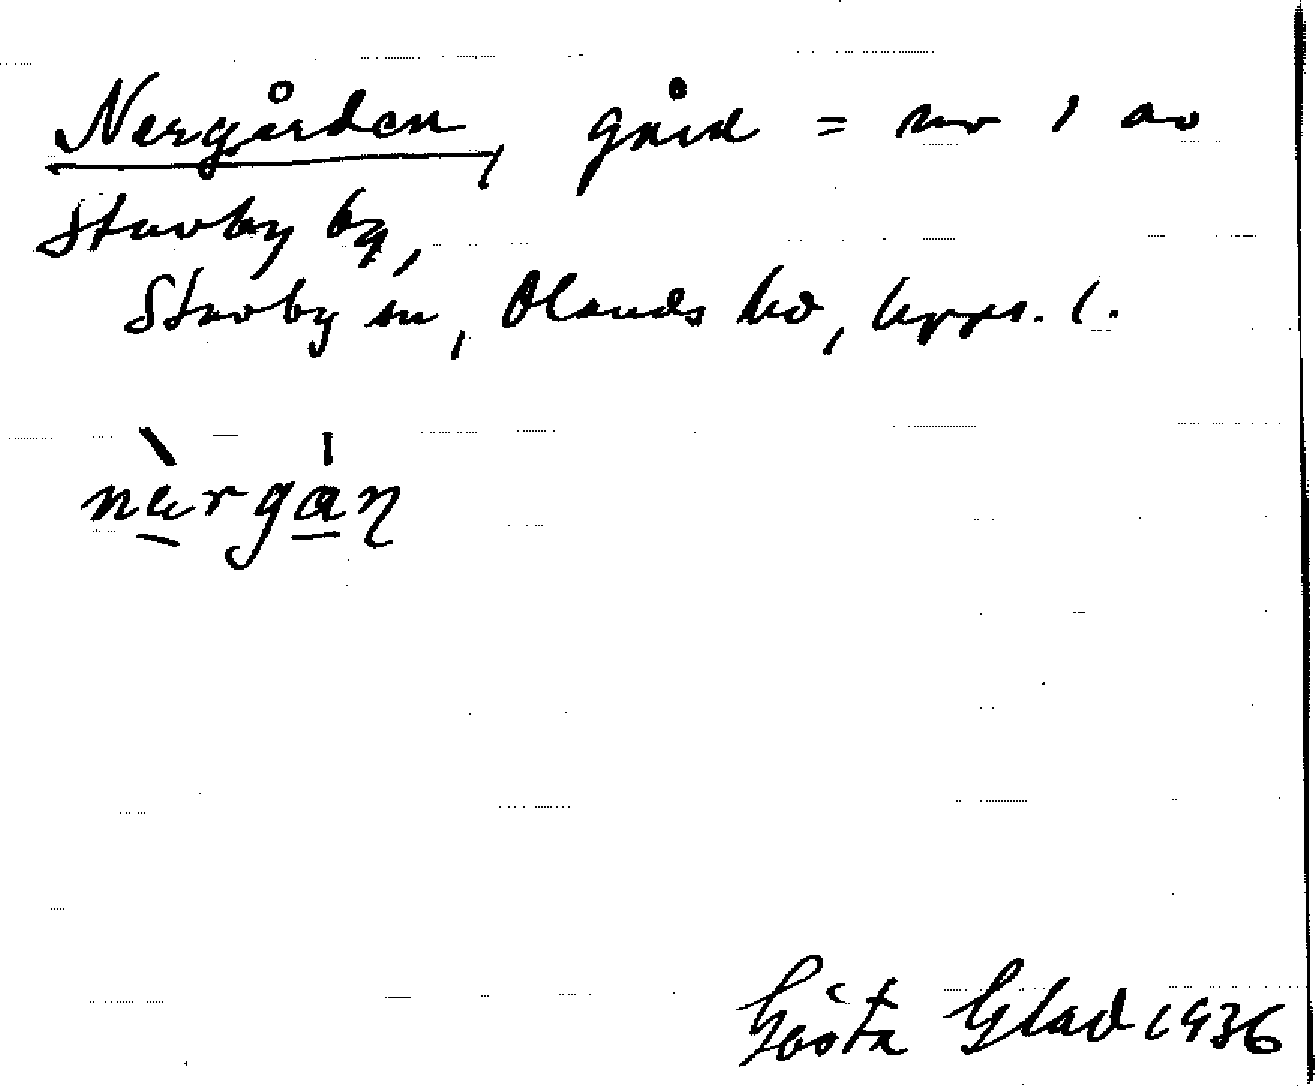 Nergården, gård = nr 1 av
Stavby by,
Stavby sn, Olands hd, Upps. l.
närgàn
Gösta Glad 1936